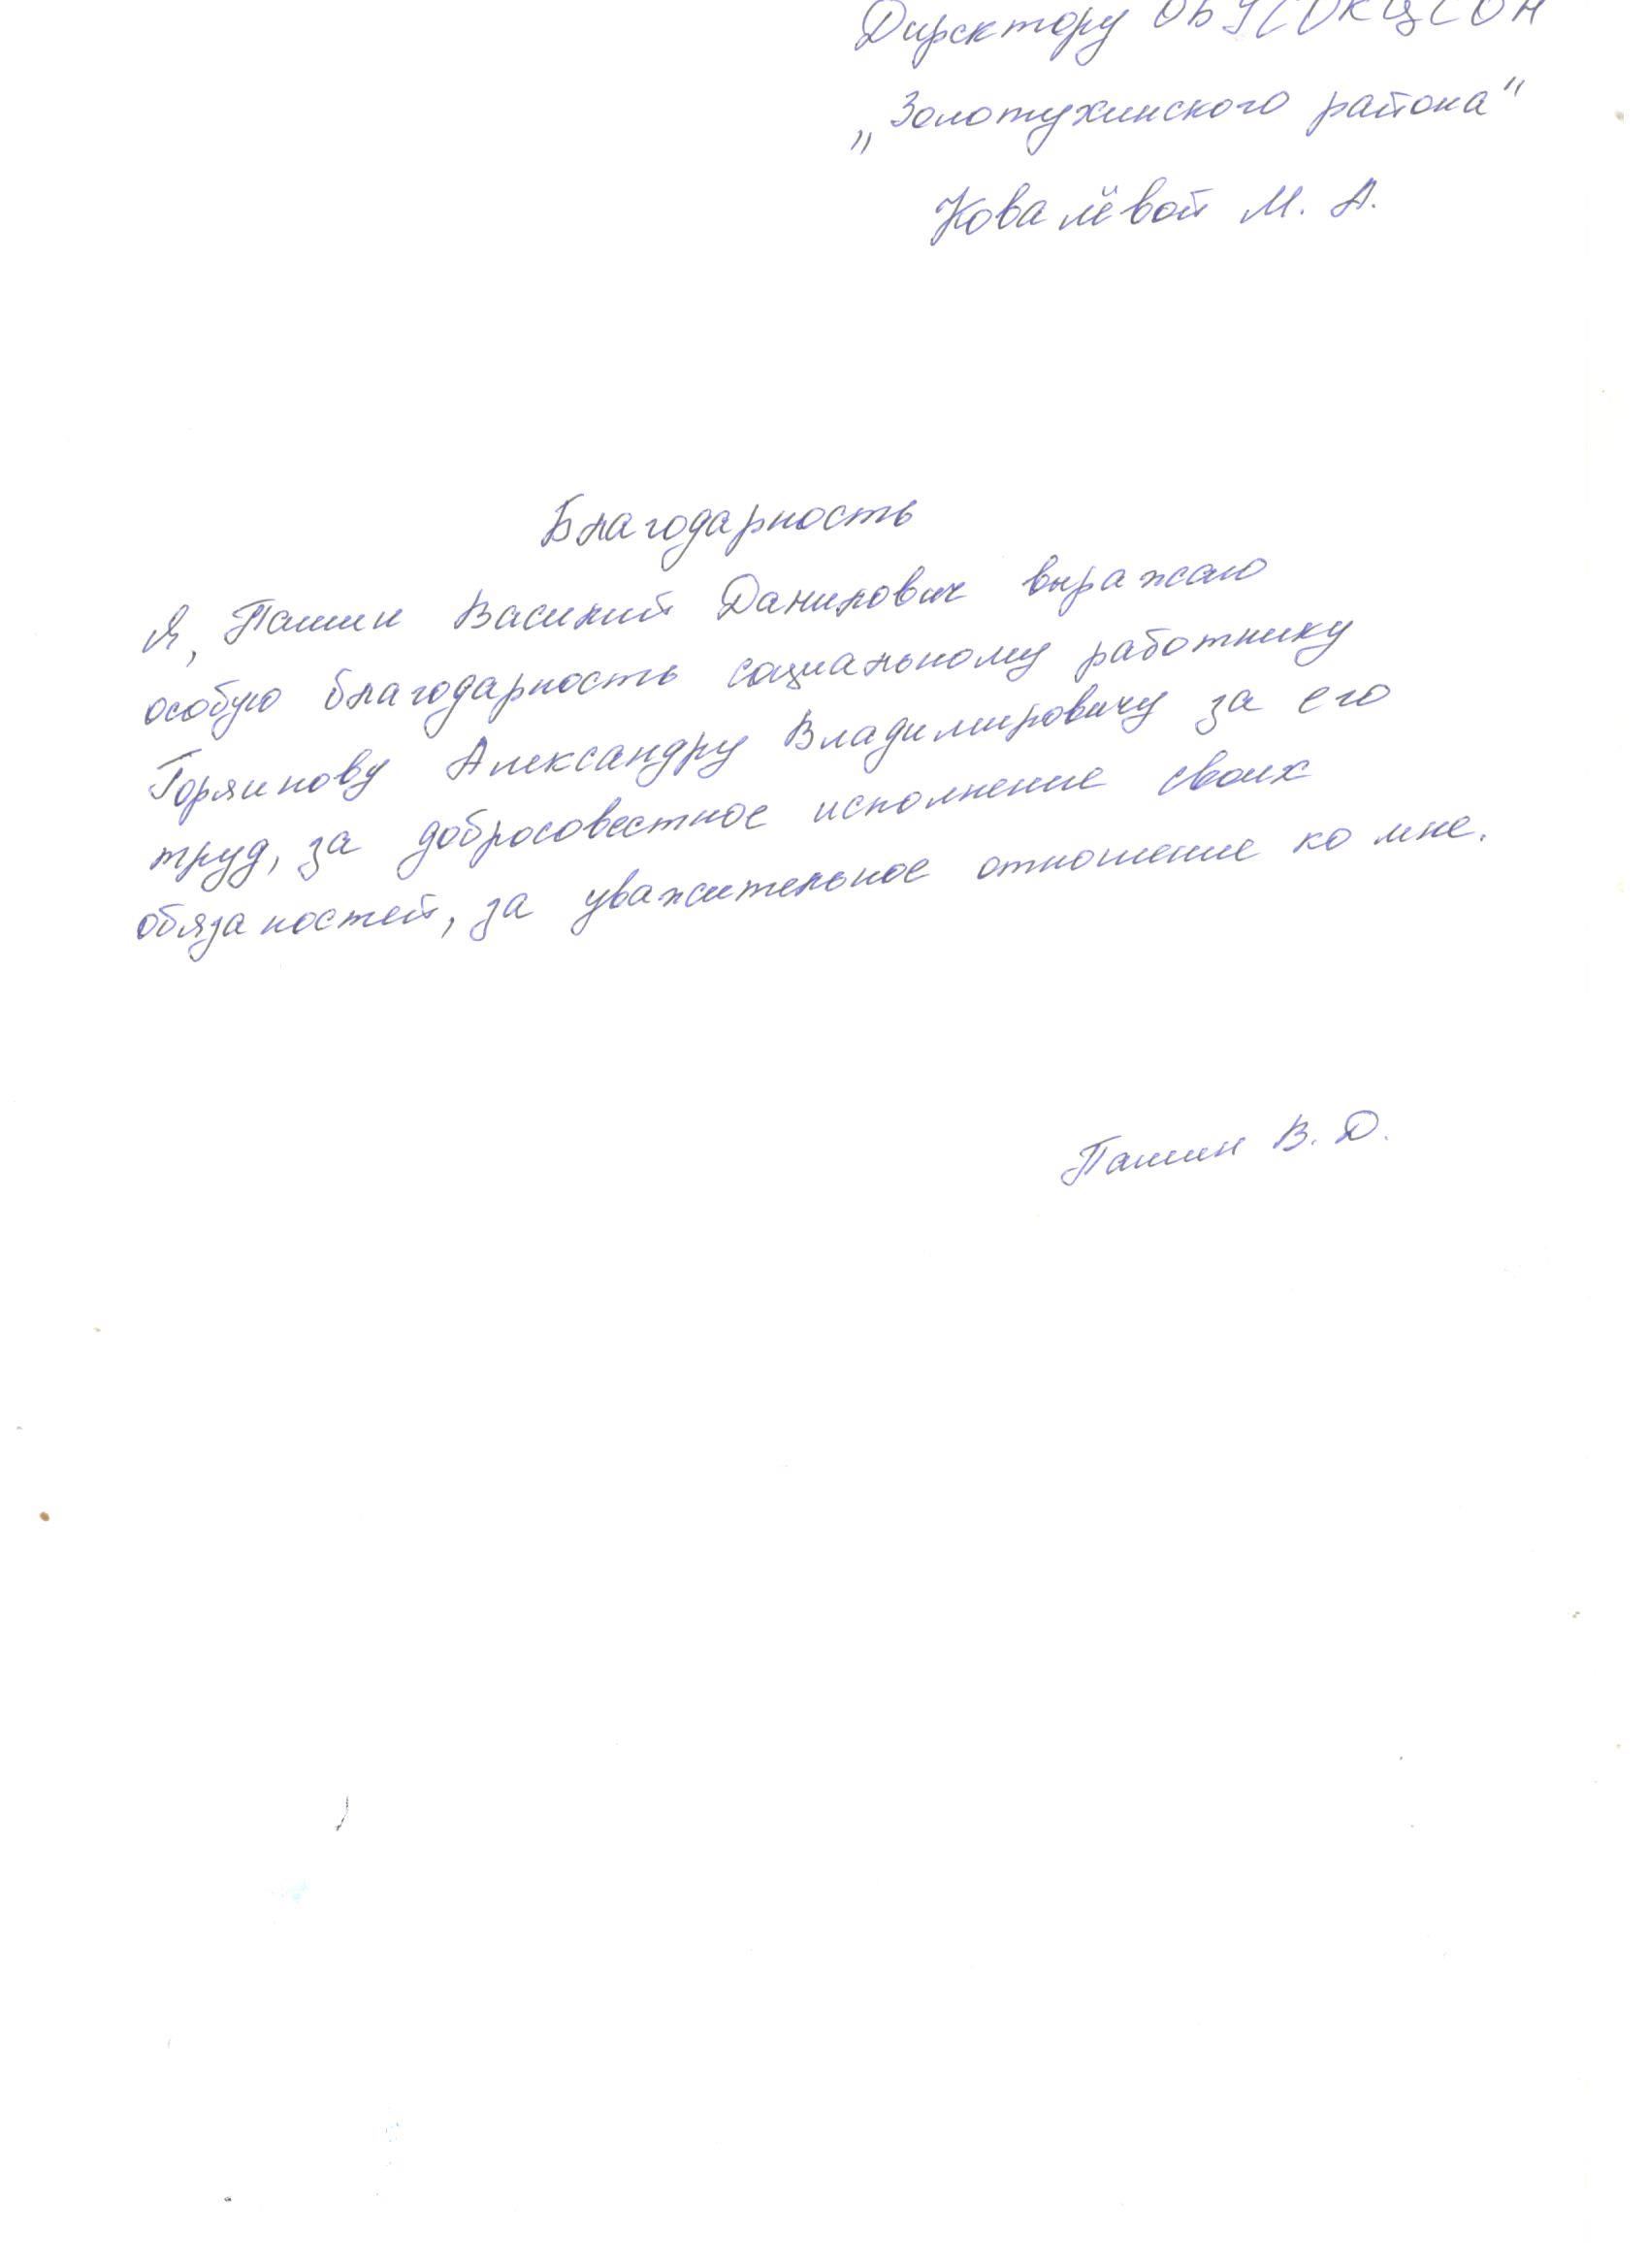 Директору ОБУСОКЦСОН
„Золотухинского района“
Ковалёвой М. А.
Благодарность
Я, Пашин Василий Данилович выражаю
особую благодарность социальному работнику
Горяинову Александру Владимировичу за его
труд, за добросовестное исполнение своих
обязаностей, за уважительное отношение ко мне.
Пашин В. Д.